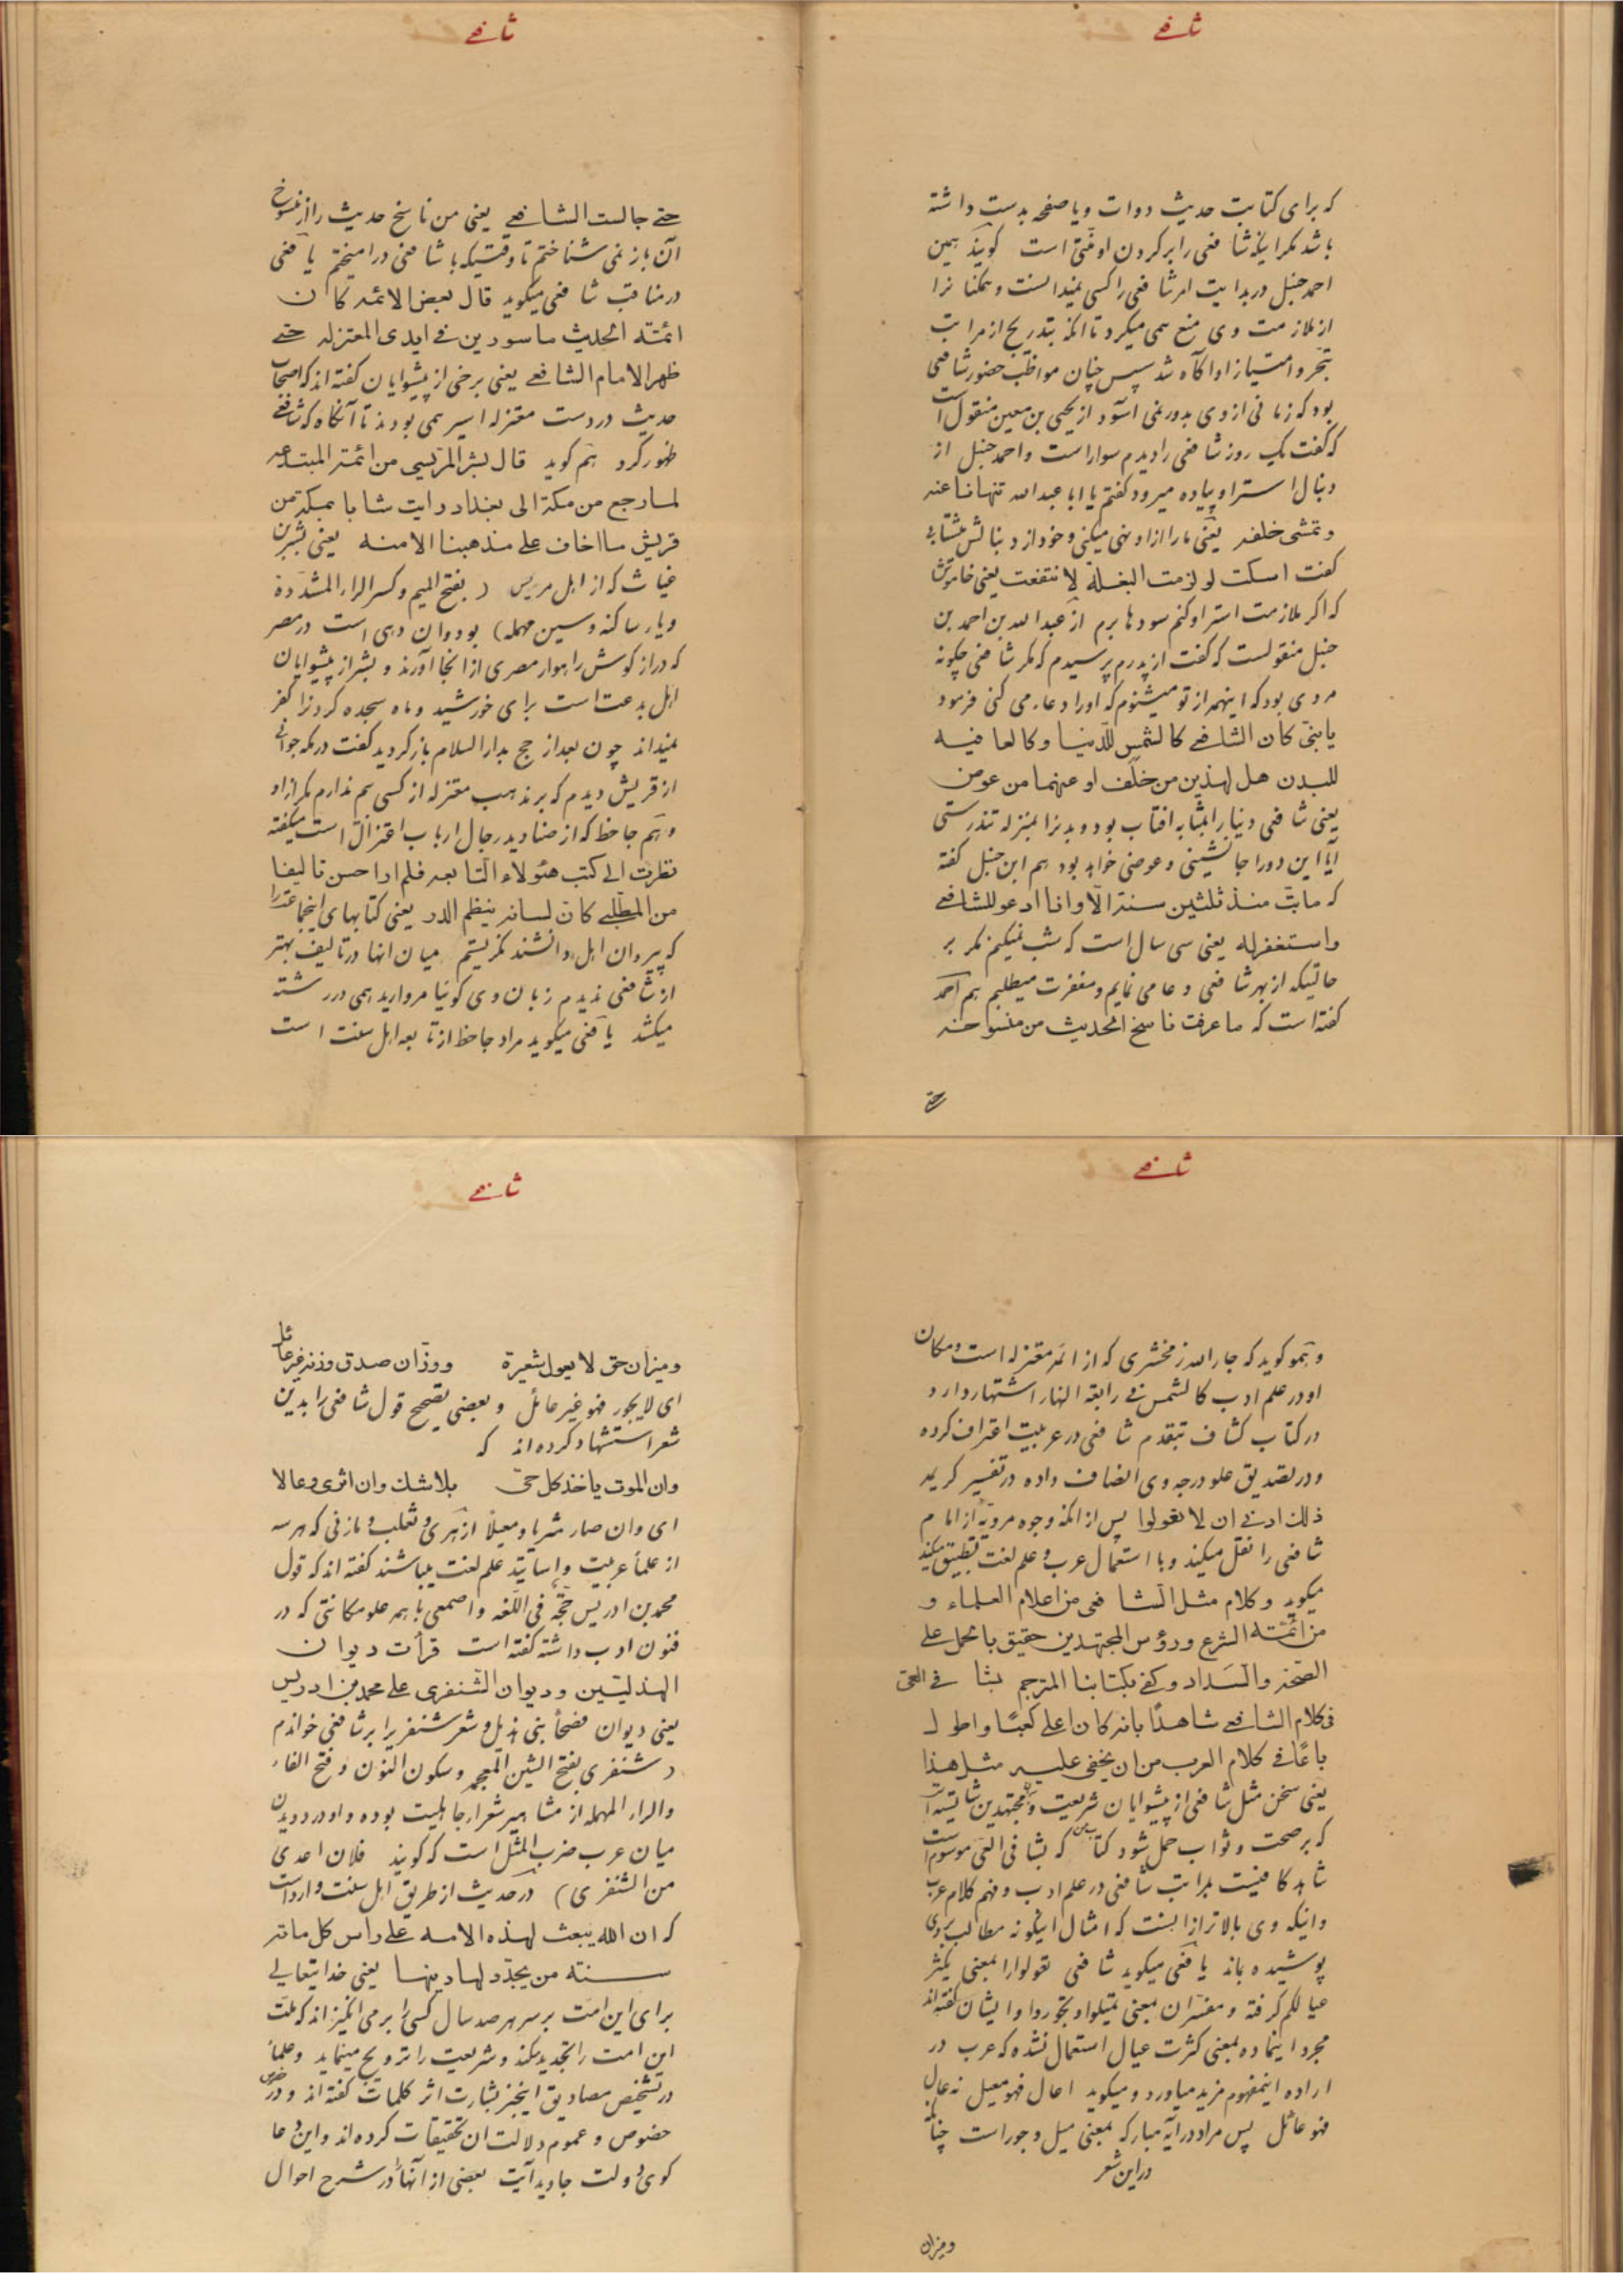 شافعی
که برای کتابت حدیث دوات ویا صفحه بدست داشته
باشد مگر اینکه شافعی را بر گردن او منّتی است گویند همین
احمد حنبل در بدایت امر شافعی را کسی نمیدانست و همکنانرا
از ملازمت وی منع همی میکرد تا آنکه بتدریج از مراتب
تبحّر و امتیاز او آگاه شد سپس چنان مواظب حضور شافعی
بود که زمانی از وی بدور نمی آسود از یحیی بن معین منقول است
که گفت یک روز شافعی را دیدم سوار است و احمد حنبل از
دنبال استر او پیاده میرود گفتم یا ابا عبدالله تنهانا عنه
و تمشی خلفه یعنی ما را از او نهی میکنی و خود از دنبالش میشتابی
گفت اسکت لو لزمت البغلة لانتفعت یعنی خاموش
که اگر ملازمت استر او کنم سودها برم از عبدالله بن احمد بن
حنبل منقولست که گفت از پدرم پرسیدم که مگر شافعی چگونه
مردی بود که اینهمه از تو میشنوم که او را دعا می کنی فرمود
یا بنیّ کان الشافعی کالشمس للدّنیا و کالعافیه
للبدن هل لهذین من خلف او عنهما من عوض
یعنی شافعی دنیا را بمثابه افتاب بود و بدنرا بمنزله تندرستی
آیا این دو را جانشینی و عوضی خواهد بود هم ابن حنبل گفته
که ما بتّ منذ ثلثین سنة الّا وانا ادعو للشافعی
واستغفر له یعنی سی سال است که شب نمیکنم مگر بر
حالتیکه از بهر شافعی دعا می نمایم و مغفرت میطلبم هم احمد
گفته است که ما عرفت ناسخ الحدیث من منسوخه
حتی
شافعی
حتی جالست الشافعی یعنی من ناسخ حدیث را از منسوخ
آن باز نمی شناختم تا وقتیکه با شافعی درامیختم یافعی
در مناقب شافعی میگوید قال بعض الائمه کان
ائمّته الحدیث ماسورین فی ایدی المعتزله حتی
ظهر الامام الشافعی یعنی برخی از پیشوایان گفته اند که اصحاب
حدیث در دست معتزله اسیر همی بودند تا آنگاه که شافعی
ظهور کرد هم گوید قال بشر المرّیسی من ائمّة المبتدعه
لما رجع من مکة الی بغداد رایت شابا بمکة من
قریش ما اخاف علی مذهبنا الا منه یعنی بشر بن
غیاث که از اهل مریس (بفتح المیم و کسر الراء المشدّدة
و یاء ساکنه و سین مهمله) بود و ان دهی است در مصر
که دراز گوش راهوار مصری از انجا آورند و بشر از پیشوایان
اهل بدعت است برای خورشید و ماه سجده کردنرا کفر
نمیداند چون بعد از حج بدار السلام بازگردید گفت در مکه جوانی
از قریش دیدم که بر مذهب معتزله از کسی بیم ندارم مگر از او
و هم جاحظ که از صنادید رجال ارباب اعتزال است میگفته
نظرت الی کتب هئولاء التابعه فلم ار احسن تالیفا
من المطّلبی کان لسانه ینظم الدر یعنی کتابهای اینجماعت را
که پیروان اهل دانشند نگریستم میان انها در تالیف بهتر
از شافعی ندیدم زبان وی گوئیا مروارید همی در رشته
میکشد یافعی میگوید مراد جاحظ از تابعه اهل سنت است
شافعی
و همو گوید که جار الله زمخشری که از ائمه معتزله است و مکان
او در علم ادب کالشمس فی رابعة النهار اشتهار دارد
در کتاب کشاف بتقدم شافعی در عربیت اعتراف کرده
و در تصدیق علو درجه وی انصاف داده در تفسیر کریمه
ذلک ادنی ان لا تعولوا پس از انکه وجوه مرویّه از امام
شافعی را نقل میکند و با استعمال عرب و علم لغت تطبیق میکند
میگوید و کلام مثل الشافعی من اعلام العلماء و
من ائمّته الشرع و رؤس المجتهدین حقیق بالحمل علی
الصّحّة والسّداد و کفی بکتابنا المترجم بشافی العیّ
فی کلام الشافعی شاهدًا بانه کان اعلی کعبًا و اطول
باعًا فی کلام العرب من ان یخفی علیه مثل هذا
یعنی سخن مثل شافعی از پیشوایان شریعت و مجتهدین شایسته است
که بر صحت و ثواب حمل شود کتاب من که بشافی العی موسوم است
شاهد کافیست بمراتب شافعی در علم ادب و فهم کلام عرب
و اینکه وی بالاتر از انست که امثال اینگونه مطالب بر وی
پوشیده باند یافعی میگوید شافعی تعولوا را بمعنی یکثر
عیالکم گرفته و مفسّران بمعنی تمیلوا و تجوروا و ایشان گفته اند
مجرد اینماده بمعنی کثرت عیال استعمال نشده که عرب در
اراده اینمفهوم مزید میاورد و میگوید اعال فهو معیل نه عال
فهو عائل پس مراد در آیه مبارکه بمعنی میل و جور است چنانکه
در این شعر
و میزان
شافعی
و میزان حق لا یعول شعیرة و وزّان صدق وزنه غیر عائل
ای لا یجور فهو غیر عائل و بعضی بتصحیح قول شافعی را بدین
شعر استشهاد کرده اند که
و ان الموت یاخذ کل حیّ بلا شک و ان اثری و عالا
ای و ان صار مثریا و معیلًا ازهری و ثعلب و مازنی که هر سه
از علماء عربیت و اساتید علم لغت میباشند گفته اند که قول
محمد بن ادریس حجّة فی اللّغه و اصمعی با همه علو مکانتی که در
فنون ادب داشته گفته است قرأت دیوان
الهذلیّین و دیوان الشّنفری علی محمد بن ادریس
یعنی دیوان فصحاء بنی هذیل و شعر شنفریرا بر شافعی خواندم
(شنفری بفتح الشین المعجمه و سکون النّون و فتح الفاء
والراء المهمله از مشاهیر شعراء جاهلیت بوده و او در دویدن
میان عرب ضرب المثل است که گویند فلان اعدی
من الشنفری) در حدیث از طریق اهل سنت وارد است
که ان الله یبعث لهذه الامه علی راس کل مائة
سنته من یجدّد لها دینها یعنی خدایتعالی
برای این امّت بر سر هر صد سال کسی را بر می انگیزاند که ملت
این امت را تجدید میکند و شریعت را ترویج مینماید و علماء
در تشخیص مصادیق اینخبر بشارت اثر کلمات گفته اند و در
خصوص و عموم دلالت ان تحقیقات کرده اند و این دعا
گوی دولت جاوید آیت بعضی از آنها را در شرح احوال